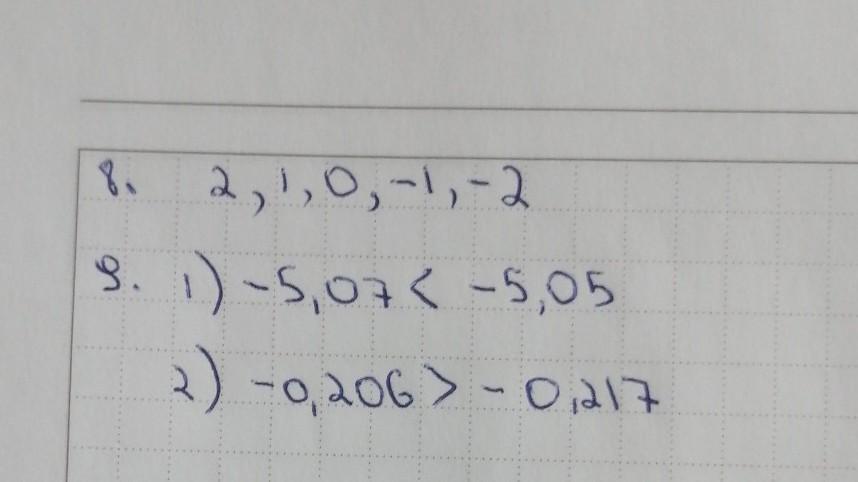 8. 2, 1, 0, -1, -2
9. 1) -5,07 < -5,05
2) -0,206 > -0,217